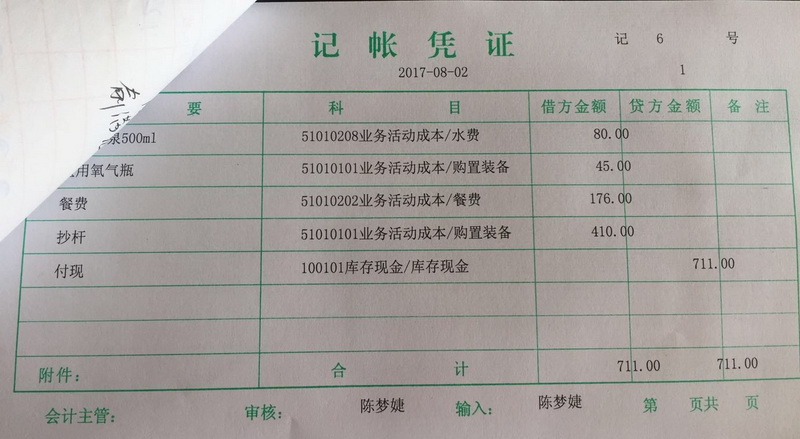 记帐凭证
记 6 号
2017-08-02 1
要 科 目 借方金额 贷方金额 备 注
泉500ml 51010208业务活动成本/水费 80.00
用氧气瓶 51010101业务活动成本/购置装备 45.00
餐费 51010202业务活动成本/餐费 176.00
抄杆 51010101业务活动成本/购置装备 410.00
付现 100101库存现金/库存现金 711.00
附件: 合 计 711.00 711.00
会计主管: 审核: 陈梦婕 输入: 陈梦婕 第 页共 页